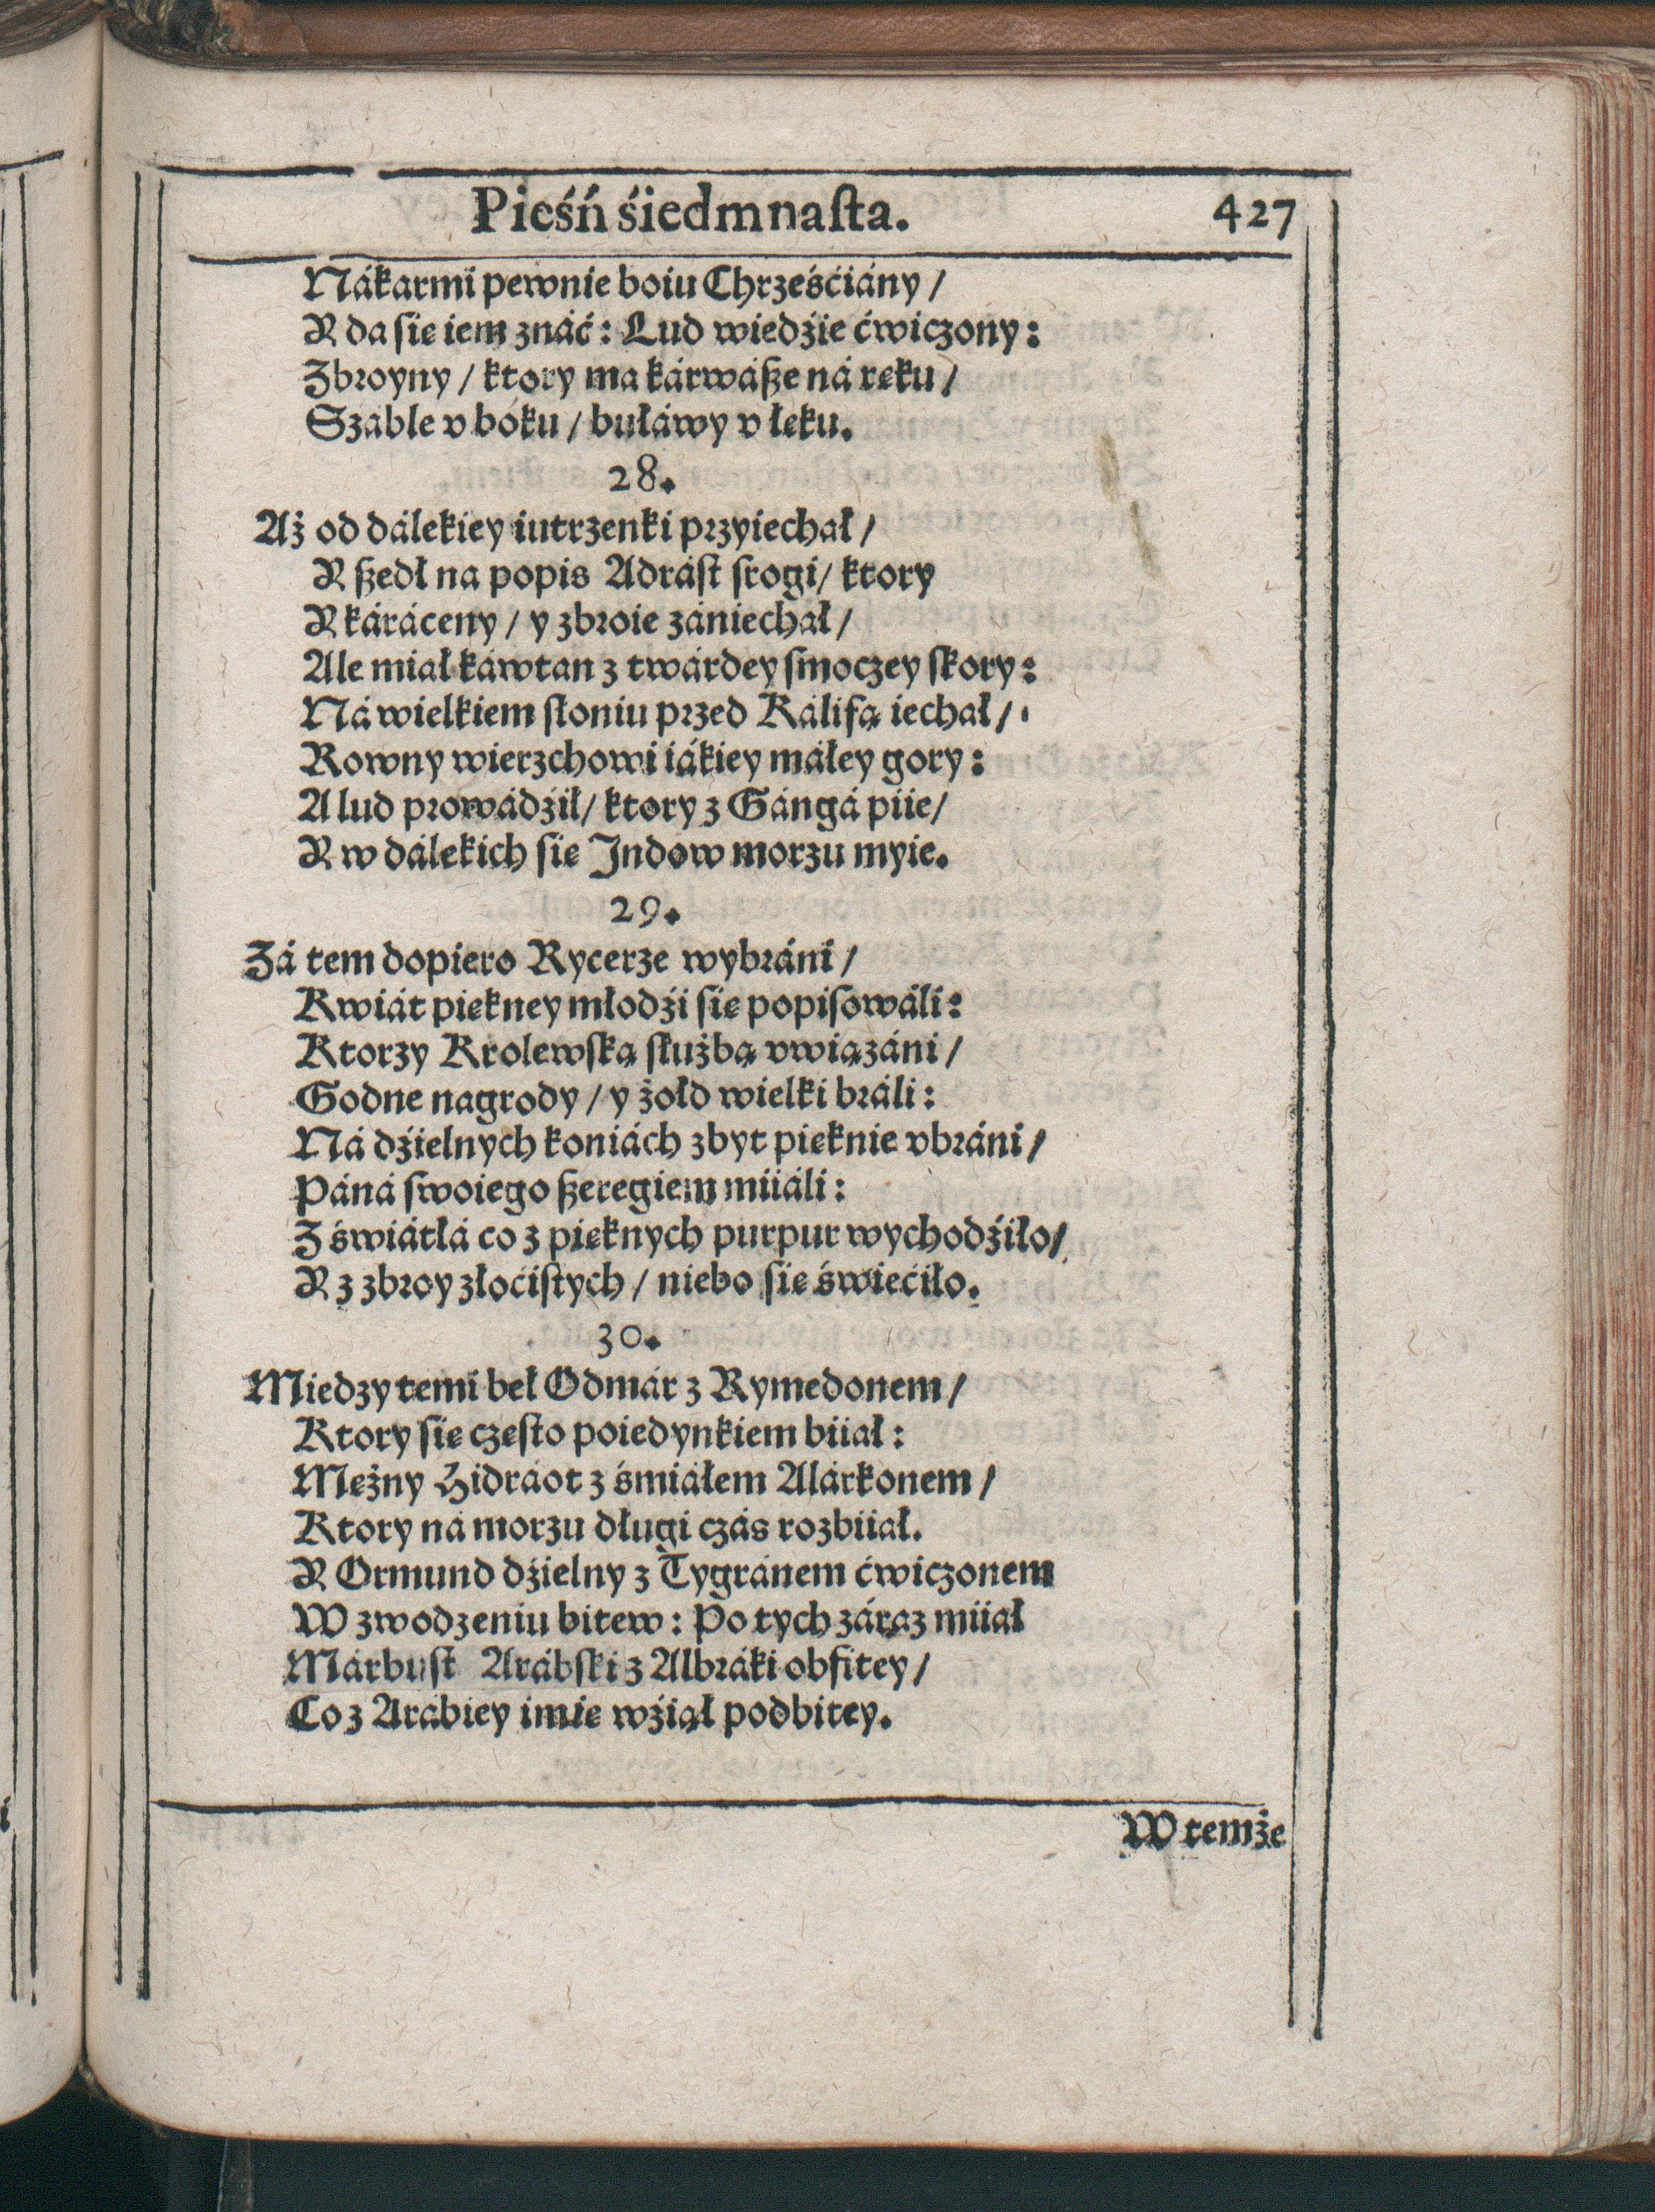 Pieśń śiedmnaſta. 427
Nákarmi pewnie boiu Chrześćiány /
Y da ſie iem znáć: Lud wiedźie ćwiczony:
Zbroyny / ktory ma kárwáße ná ręku /
Száble v boku / buláwy v łęku.
28.
Aż od dálekiey iutrzenki przyiechał /
Y ßedł na popis Adráſt ſrogi / ktory
Y káráceny / y zbroie zániechał /
Ale miał káwtan z twárdey ſmoczey ſkory:
Ná wielkiem słoniu przed Kálifą iechał /
Rowny wierzchowi iákiey máłey gory:
A lud prowádźił / ktory z Gángá piie /
Y w dálekich ſie Indow morzu myie.
29.
Zá tem dopiero Rycerze wybráni /
Kwiát piękney młodźi ſie popiſowáli:
Ktorzy Krolewſką służbą vwiązáni /
Godne nagrody / y żołd wielki bráli:
Ná dźielnych koniách zbyt pięknie vbráni /
Páná ſwoiego ßeregiem miiáli:
Z świátłá co z pięknych purpur wychodźiło /
Y z zbroy złoćiſtych / niebo ſie świećiło.
30.
Miedzy temi beł Odmár z Rymedonem /
Ktory ſie częſto poiedynkiem biiał:
Mężny Hidráot z śmiáłem Alárkonem /
Ktory ná morzu długi czás rozbiiał.
Y Ormund dźielny z Tygránem ćwiczonem
W zwodzeniu bitew: Po tych záraz miiał
Márbuſt Arábſki z Albráki obfitey /
Co z Arábiey imię wźiął podbitey.
W temże